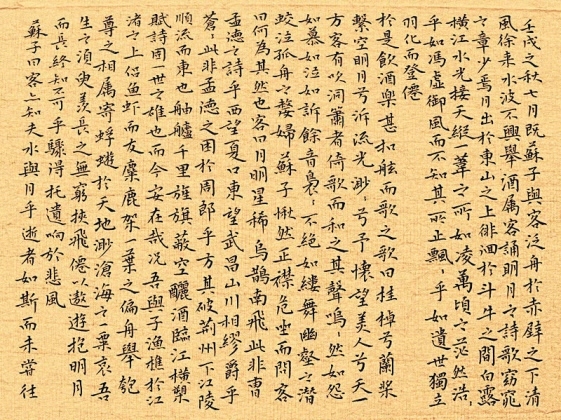 壬戌之秋七月既蘇子與客泛舟於赤壁之下清
風徐来水波不興舉酒属客誦明月之詩歌窈窕
之章少焉月出於東山之上徘徊於斗牛之間白露
横江水光接天縱一葦之所如凌萬頃之茫然浩〻
乎如馮虚御風而不知其所止飄〻乎如遺世獨立
羽化而登僊
於是飲酒樂甚扣舷而歌之歌曰桂棹兮蘭槳
擊空明月兮泝流光渺〻兮予懷望美人兮天一
方客有吹洞簫者倚歌而和之其聲嗚然如怨
如慕如泣如訴餘音裊〻不絶如縷舞幽壑之潛
蛟泣孤舟之嫠婦蘇子愀然正襟危坐而問客
曰何為其然也客曰月明星稀烏鵲南飛此非曹
孟德之詩乎西望夏口東望武昌山川相繆爵乎
蒼〻此非孟德之困於周郎乎方其破荊州下江陵
順流而東也舳艫千里旌旗蔽空釃酒臨江横槊
賦詩固一世之雄也而今安在哉况吾與子漁樵於江
渚之上侣魚蝦而友麋鹿駕一葉之偏舟舉匏
尊之相属寄蜉蝣於天地渺滄海之一粟哀吾
生之須臾羨長之無窮挾飛僊以遨遊抱明月
而長終知不可乎驟得托遺響於悲風
蘇子曰客亦知夫水與月乎逝者如斯而未嘗往